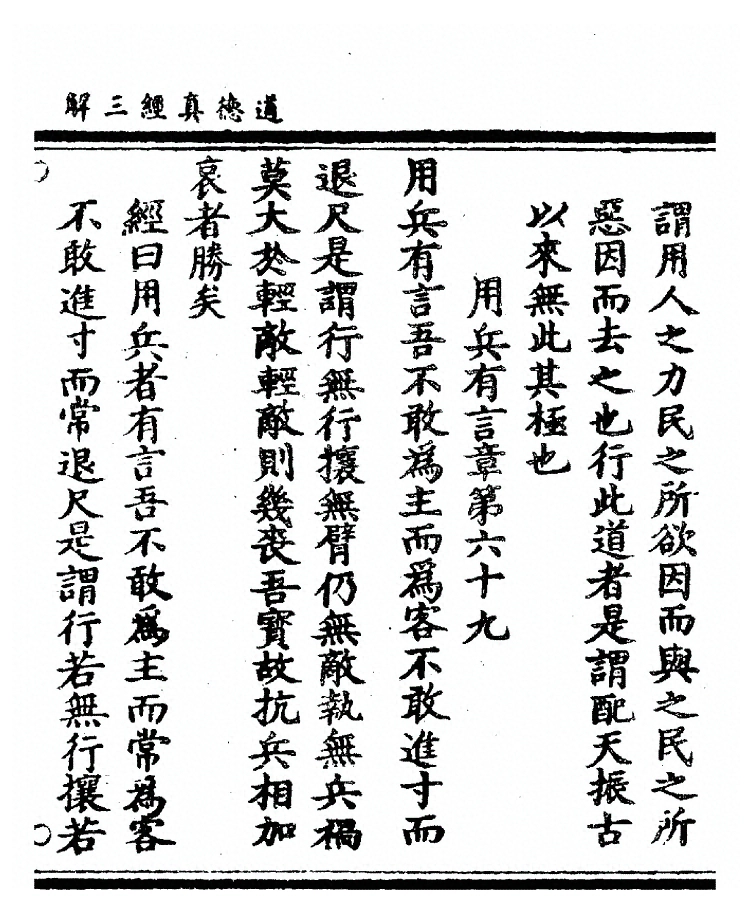 道德真經三解
謂用人之力民之所欲因而與之民之所
惡因而去之也行此道者是謂配天振古
以來無此其極也
用兵有言章第六十九
用兵有言吾不敢為主而為客不敢進寸而
退尺是謂行無行攘無臂仍無敵執無兵禍
莫大於輕敵輕敵則幾喪吾寶故抗兵相加
哀者勝矣
經曰用兵者有言吾不敢為主而常為客
不敢進寸而常退尺是謂行若無行攘若